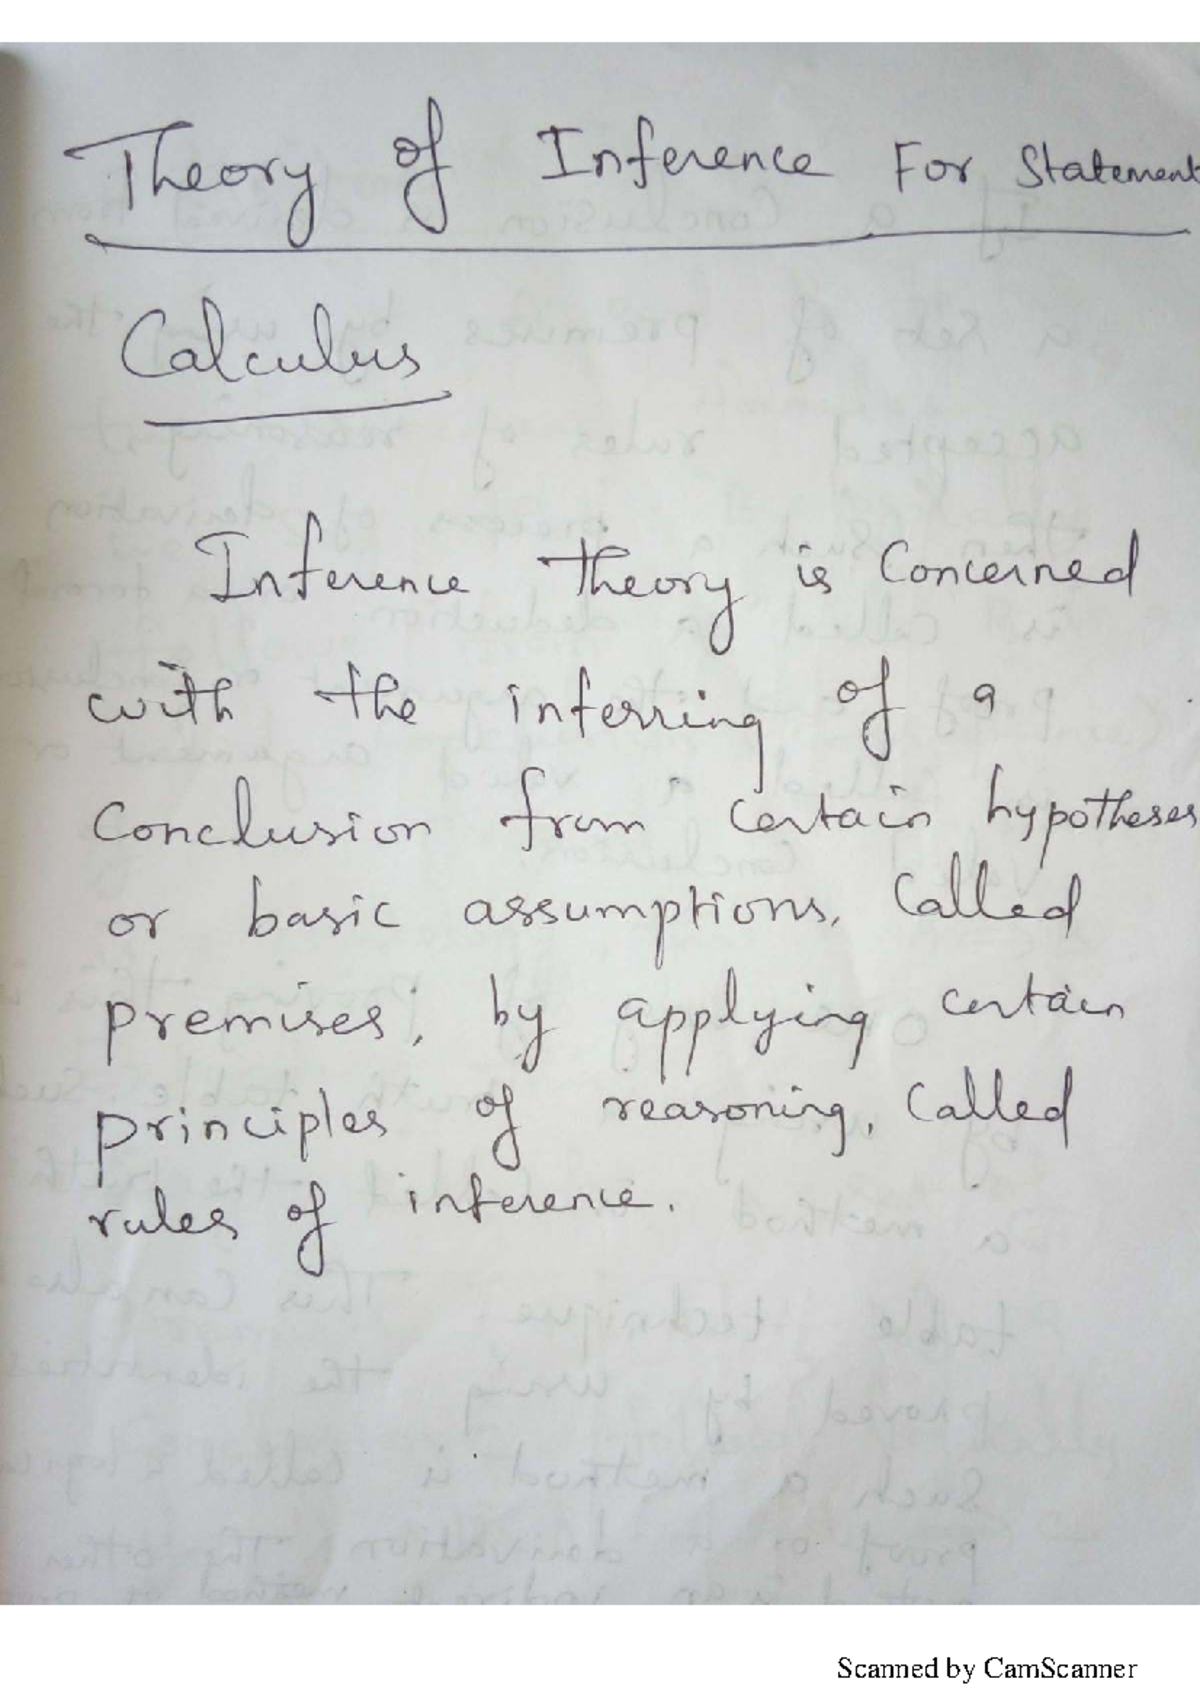 Theory of Inference For Statement
Calculus
Inference theory is Concerned
with the inferring of a
Conclusion from certain hypotheses
or basic assumptions, Called
premises, by applying certain
principles of reasoning, Called
rules of inference.
Scanned by CamScanner